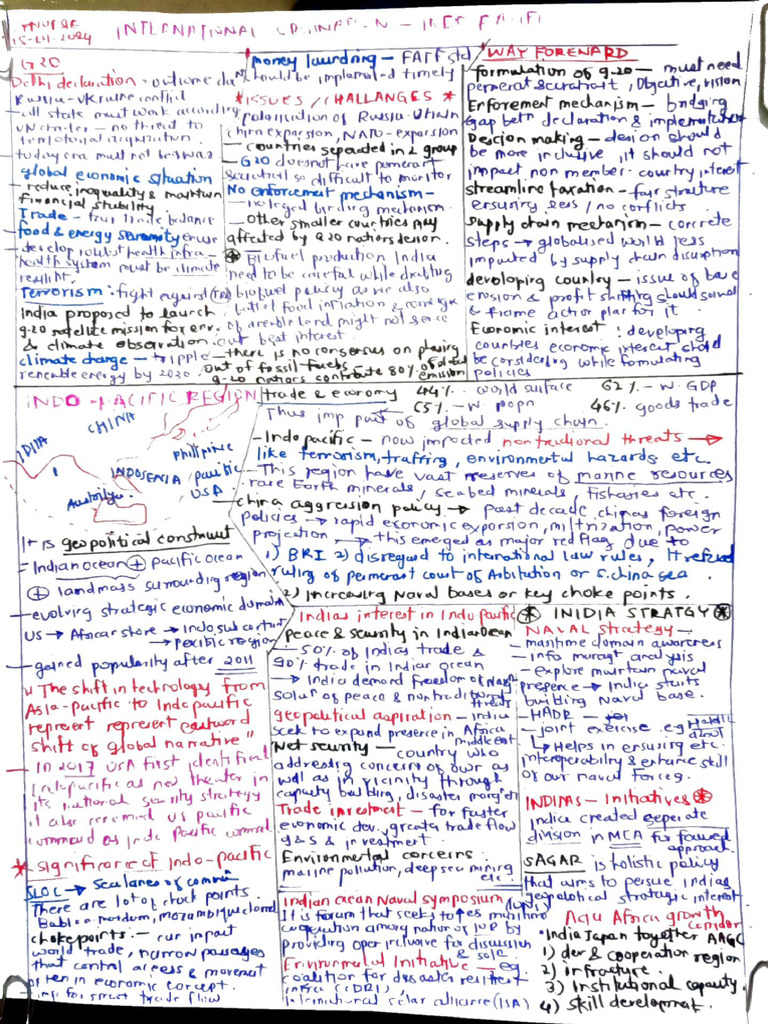 15-01-2024
INTERNATIONAL
G20
Delhi declaration - outcome
Russia - Ukraine conflict
- all state must work according
UN charter - no threat to
today era must not be war
global economic situation
- reduce inequality & maintain
financial stability
Trade - trade balance
food & energy
- develop robust health infra-
health system must be climate
resilient.
Terrorism: fight against
India proposed to launch
g-20 satellite mission for env.
& climate observation.
climate change - tripple
renewable energy by 2030
money laundring - FATF std
should be implemented timely
*ISSUES/CHALLANGES*
polarisation of Russia-Ukrain
china expansion, NATO-expansion
- countries separated in 2 group
- G20 does not have permerant
secretariat so difficult to monitor
No enforcement mechanism -
no legal binding mechanism.
- Other smaller countries may
affected by G20 nations decision.
Biofuel production India
need to be careful while drafting
biofuel policy as we also
food inflation &
of arable land might not serve
our best interest.
- there is no consensus on phasing
out of fossil fuels -
g-20 nations contribute 80% of global
emission
WAY FORENARD
formulation of g-20 - must need
permerat secratariat, Objective, vision
Enforement mechanism - bridging
Gap betn declaration & implementation
Descion making - desion should
be more inclusive, it should not
impact non member-country interest
streamline taxation - fair structure
ensuring less / no conflicts.
supply chain mectanism - concrete
steps → globalised world less
impacted by supply chain disruption
developing country - issue of base
erosion & profit shifting should solved
& frame action plan for it.
Economic interest: developing
countries economic interest should
be considering while formulating
policies
INDO-PACIFIC REGION
INDIA
CHINA
Phillipince
INDOSENIA
pacific
USA
Australya
It is geopolitical construct
- Indian ocean + pacific ocean
+ landmass surrounding region
- evolving strategic economic domain
US → African store → Indo sub contient
→ pecific region
- gained popularity after 2011
" The shift in technology from
Asia-pacific to Indo pacific
represent represent eastward
shift of global narrative"
- In 2017 USA first identified
Indo-pacific as new theater in
its national security strategy
it also renamed US pacific
command as Indo Pacific command.
* significance of Indo-pacific
SLOC → Sea lanes of commu
There are lot of chock points.
chokepoints. -
world trade, narrow passages
that control access & movement
often in economic concept.
- imp for smart trade flow
trade & economy 44% world surface 62% - W. GDP
65% - W popn 46% goods trade
Thus imp part of global supply chain.
- Indo pacific - now impacted nontraditional threats →
like terrorism, traffring, environmental hazards etc.
- This region have vast reserves of marine resources
rare Earth minerals, seabed minerals, fisheries etc.
- china aggression policy → past decade, chinas foreign
policies → rapid economic expansion, militrization, power
projection → this emeged as major red flag due to
1) BRI 2) disregard to international law rules, It refused
ruling of permerant court of Arbitation or S.china sea.
2) Increasing Naval bases or key choke points.
Indias interest in Indo pacific
peace & security in Indian ocean
- 50% of Indias trade &
90% trade in Indian ocean
→ India demand freedom of Navi
solun of peace & nontraditional
threats
geopolitical aspiration - India
seek to expand presence in Africa
middle east
Net security - country who
addressing concerns of own as
well as in vicinity through
capacity building, disaster margment
Trade investment - for faster
economic dev., greater trade flow
g&s & investment.
Environmental concerns
marine pollution, deep sea mining
etc
Indian ocean Naval symposium
(IONS)
It is forum that seek to ↑es maritime
cooperation among nation of IOR by
providing open inclusive for discussion
& soln.
Environmental Initiative - eg.
coalition for disaster resilient
infra (CDRI)
international solar alliance (ISA)
INIDIA STRATGY
NAVAL strategy -
- maritime domain awareness
- info &
- explore maintain naval
presence → India starts
building Naval base.
- HADR -
- joint exercise. eg.
↳ Helps in ensuring etc.
interoperability & enhance skill
of our naval forces.
INDIAS - Initiatives
India created seperate
division in MEA for focused
approach.
SAGAR is holistic policy
that aims to persue Indias
geopolitical strategic interest
Asia Africa growth
corridor
• India Japan together AAGC
1) dev & cooperation region
2) infracture.
3) Institutional capacity.
4) skill development.